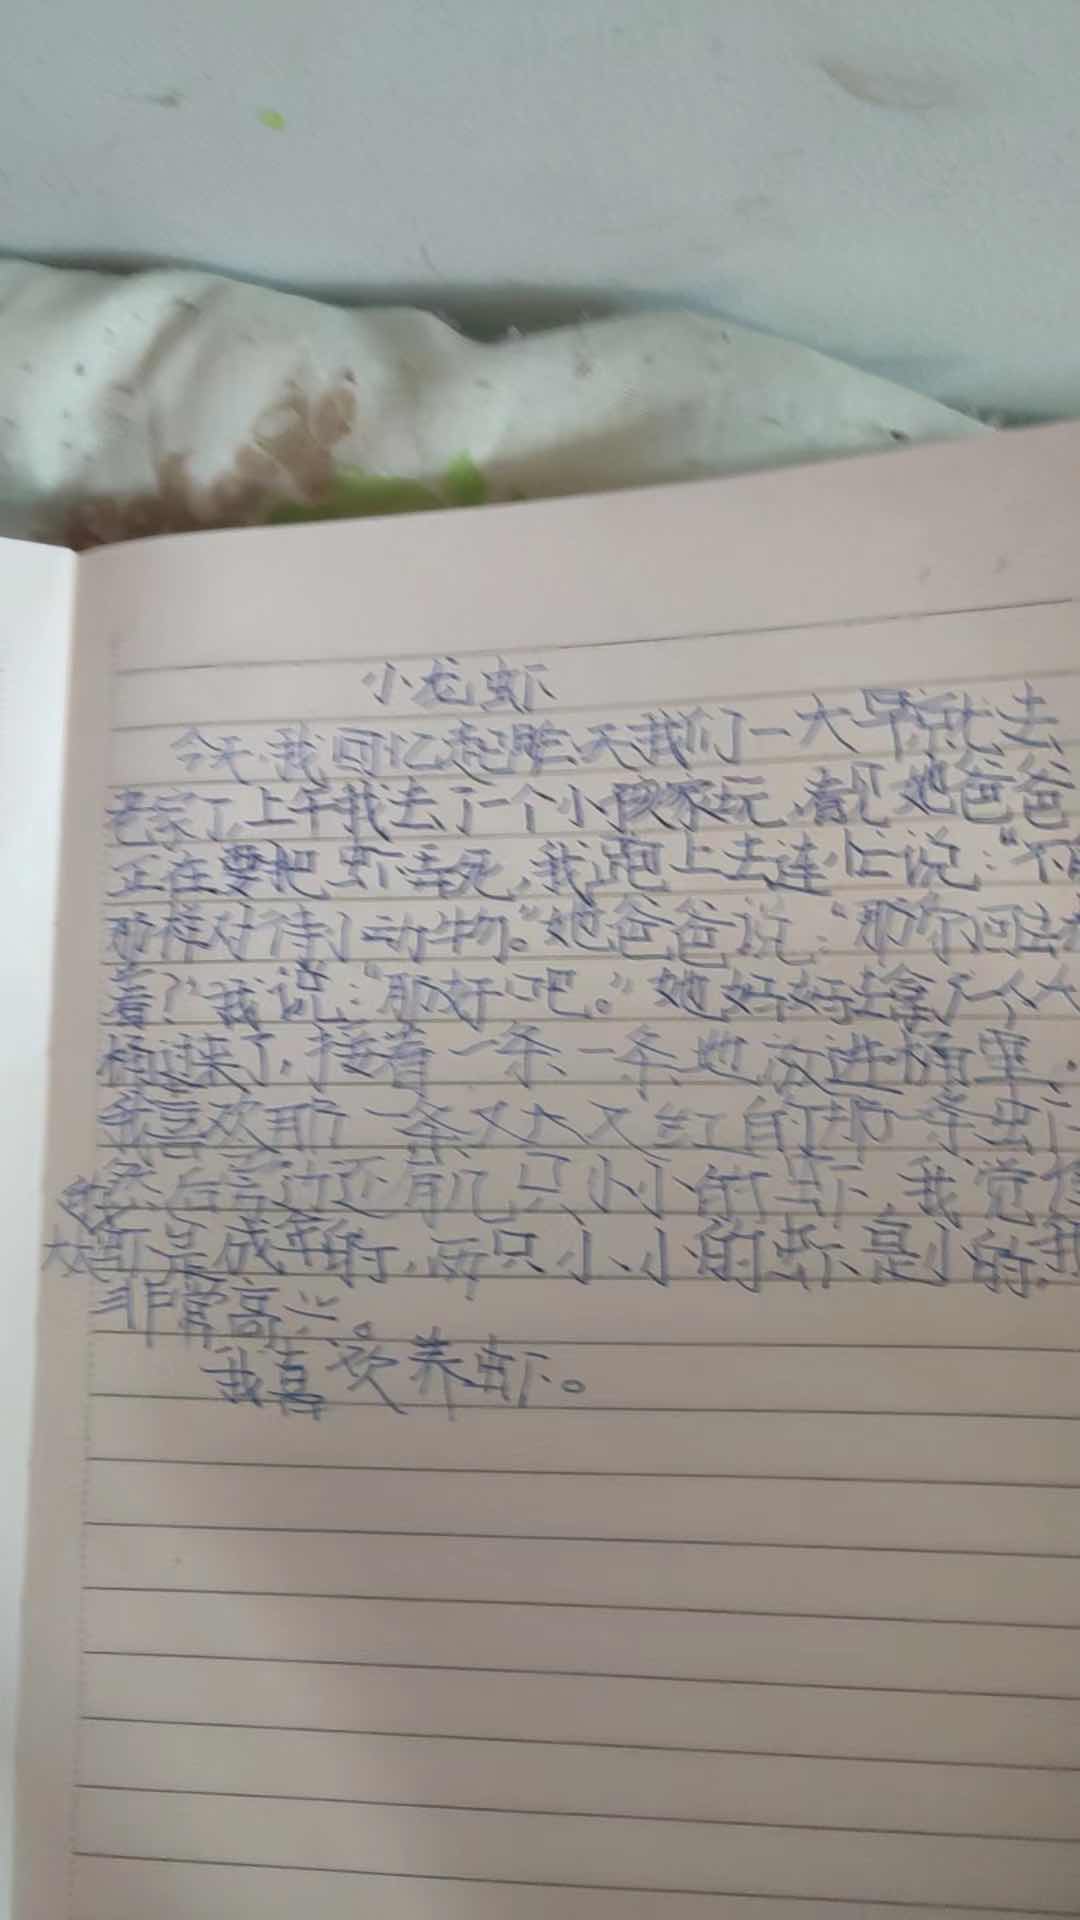 小龙虾
今天,我回忆起昨天我们一大早就去
老家了,上午我去了一个小孩家玩,看见她爸爸
正在要把虾弄死,我跑上去连忙说:“不
那样对待小动物。”她爸爸说:“那你回去
着?”我说:“那好吧。”她妈妈去拿了一个大
桶过来了,接着一条一条地放进桶里.
我喜欢那一条又大又红的那一条虾
然后旁边还有几只小小的虾,我觉得
大虾是成年的,两只小小的虾是小的,我
非常高兴。
我喜欢养虾。